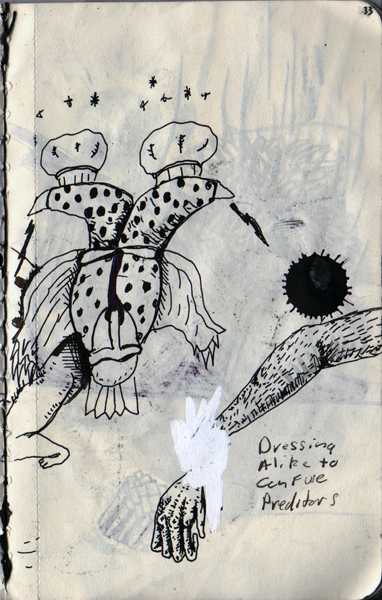 33
Dressing
Alike to
ConFuse
Preditors